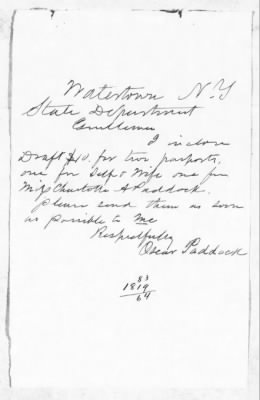 Watertown N.Y
State Department
Gentlemen
I inclose
Draft $10. for two passports,
one for Self & Wife one for
Miss Charlotte A Paddock.
please send them as soon
as possible to Me
Respectfully
Oscar Paddock
83
1819
64